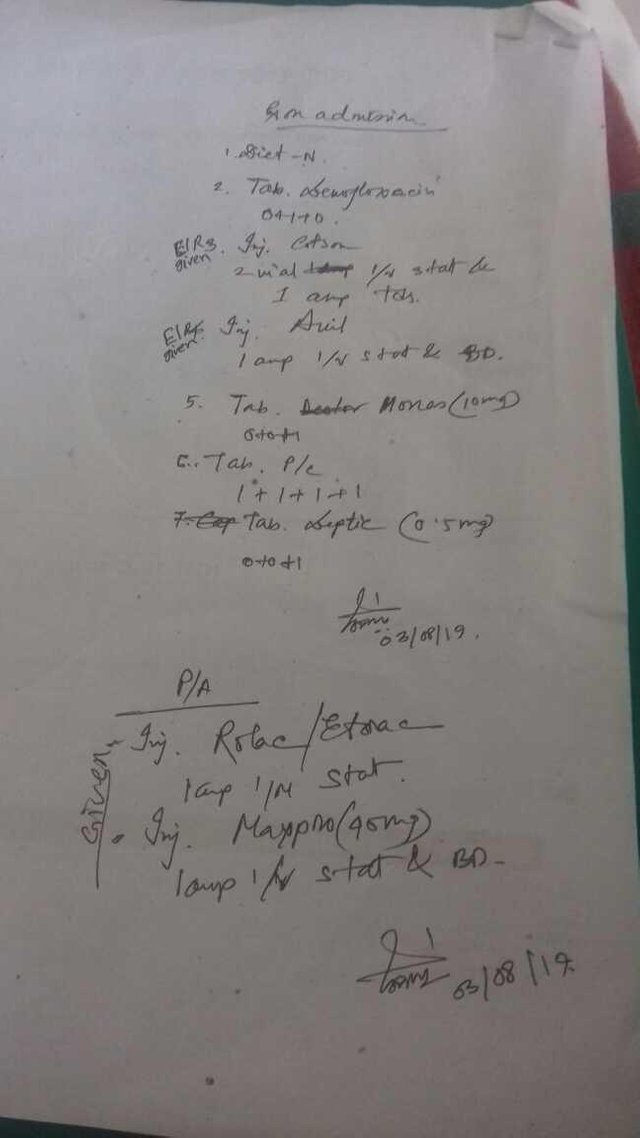 on admission
1. Diet - N.
2. Tab. Levofloxacin
0+1+0.
Inj. Cotson
given. 2 vial 1/v stat &
1 amp tds.
Inj. Avil
given. 1 amp 1/v stat & BD.
5. Tab. Monas (10mg)
0+0+1
6. Tab. P/c
1+1+1+1
7. Tab. Leptic (0.5mg)
0+0+1
03/08/19.
P/A
Given. Inj. Rolac/Etorac
1 amp 1/M stat.
Inj. Maxpro (40mg)
1 amp 1/v stat & BD-
03/08/19.